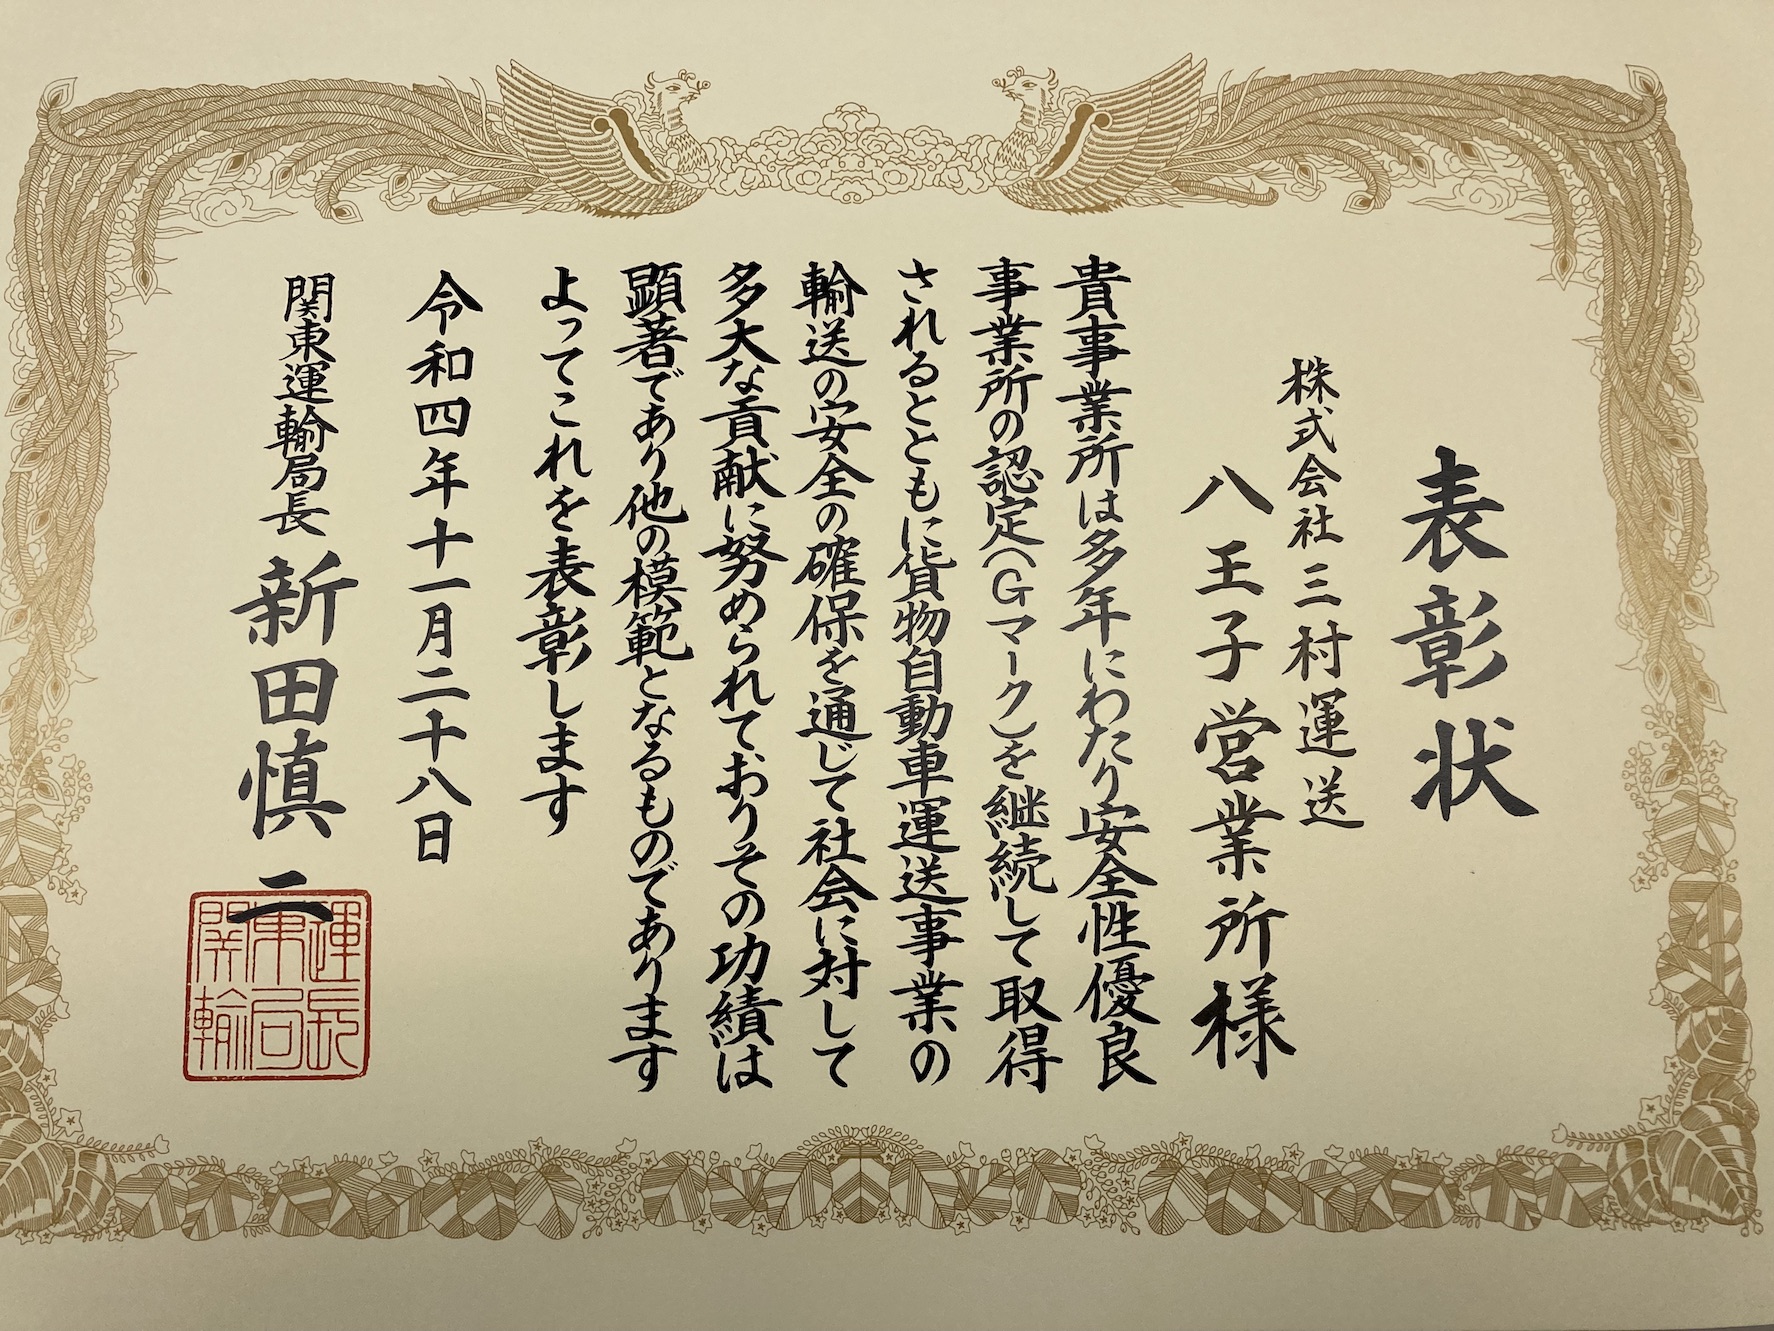 表彰状
株式会社三村運送
八王子営業所様
貴事業所は多年にわたり安全性優良
事業所の認定(Gマーク)を継続して取得
されるとともに貨物自動車運送事業の
輸送の安全の確保を通じて社会に対して
多大な貢献に努められておりその功績は
顕著であり他の模範となるものであります
よってこれを表彰します
令和四年十一月二十八日
関東運輸局長 新田慎二
運長
東局
関輸